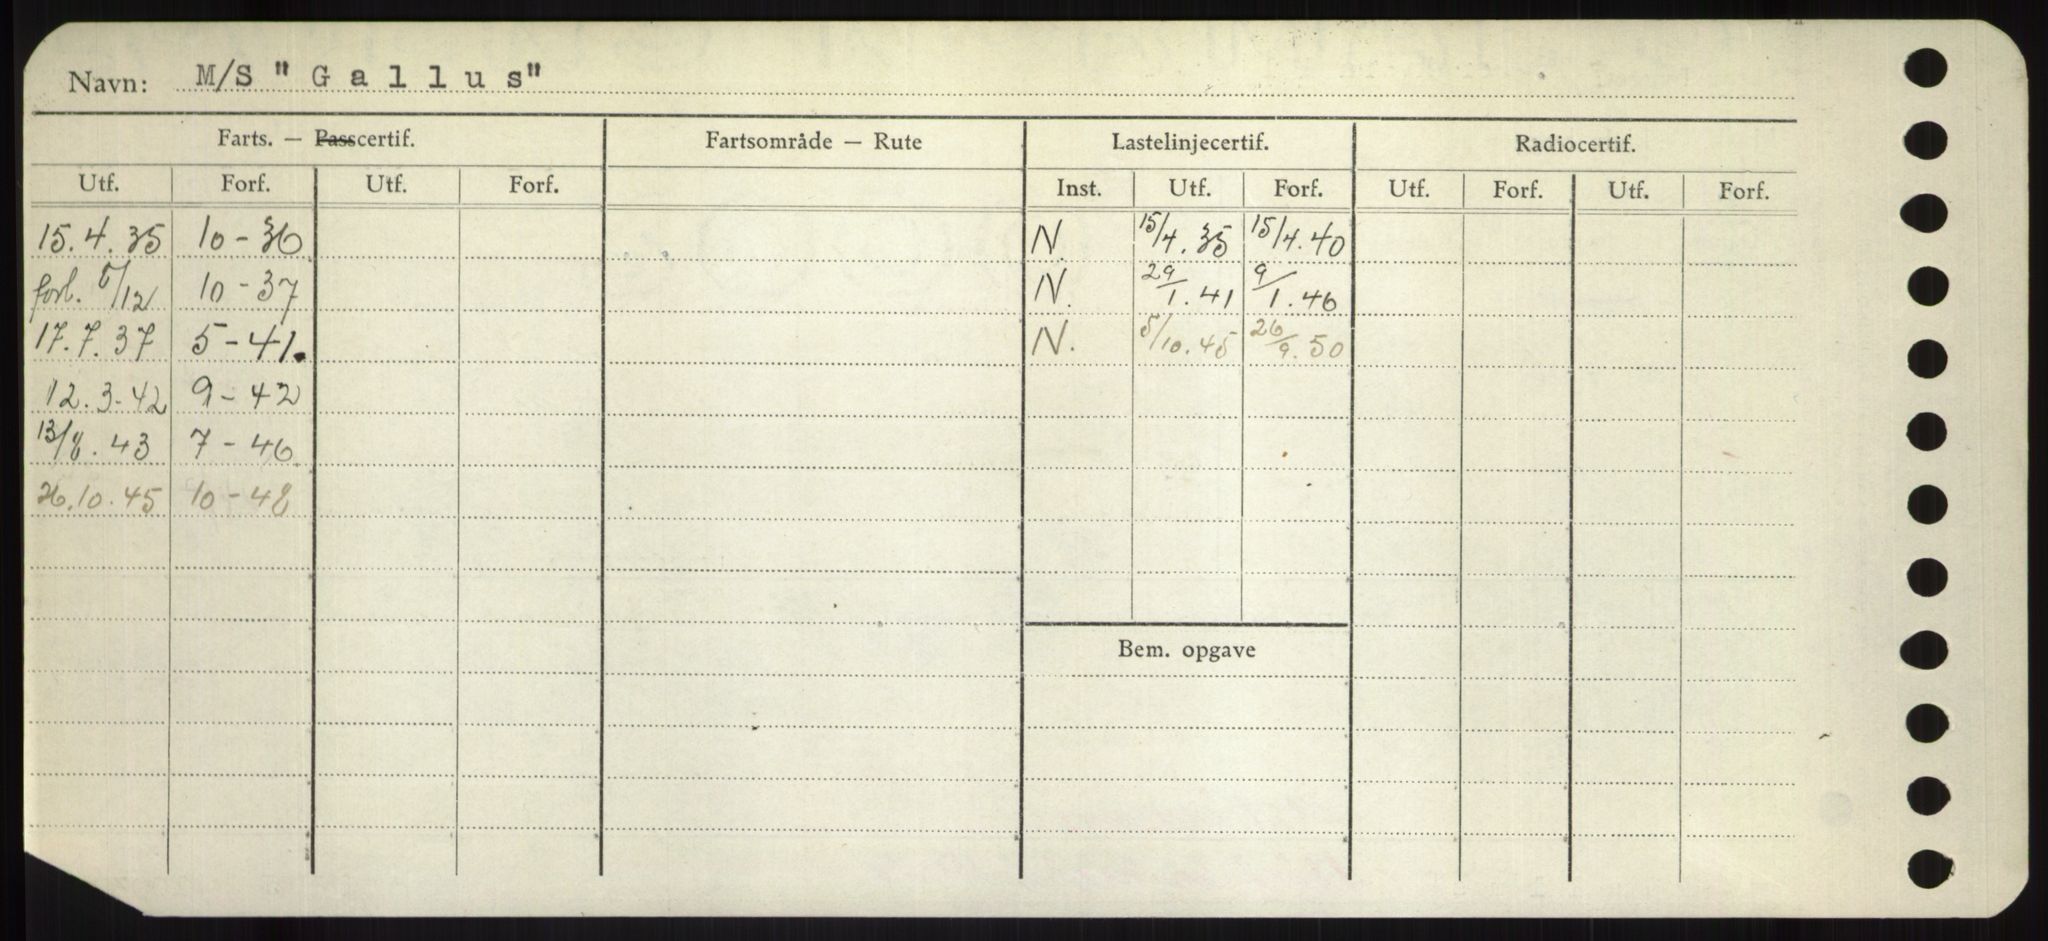 Navn: M/S "Gallus"
Farts. — Passcertif. Fartsområde — Rute Lastelinjecertif. Radiocertif.
Utf. Forf. Utf. Forf. Inst. Utf. Forf. Utf. Forf. Utf. Forf.
15.4.35 10-36 N. 15/4.35 15/4.40
forl. 5/12 10-37 N. 29/1.41 9/1.46
17.7.37 5-41. N. 5/10.45 26/9.50
12.3-42 9-42
13/8.43 7-46
26.10.45 10-48
Bem. opgave